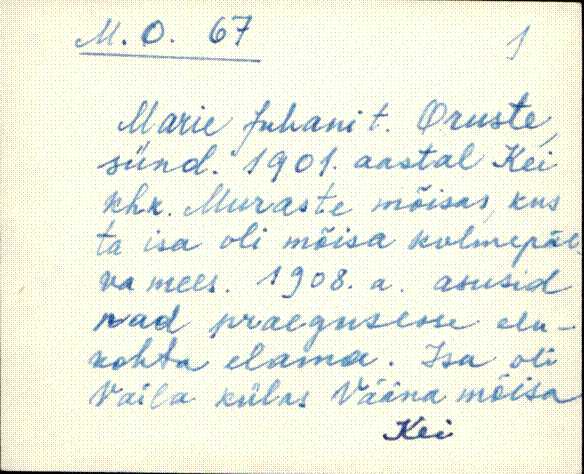 M. O. 67
1
Marie Juhani t. Oruste,
sünd. 1901. aastal Kei
khk. Muraste mõisas, kus
ta isa oli mõisa kolmepäe-
va mees. 1908. a. asusid
nad praegusesse elu-
kohta elama. Isa oli
Vaila külas Vääna mõisa
Kei